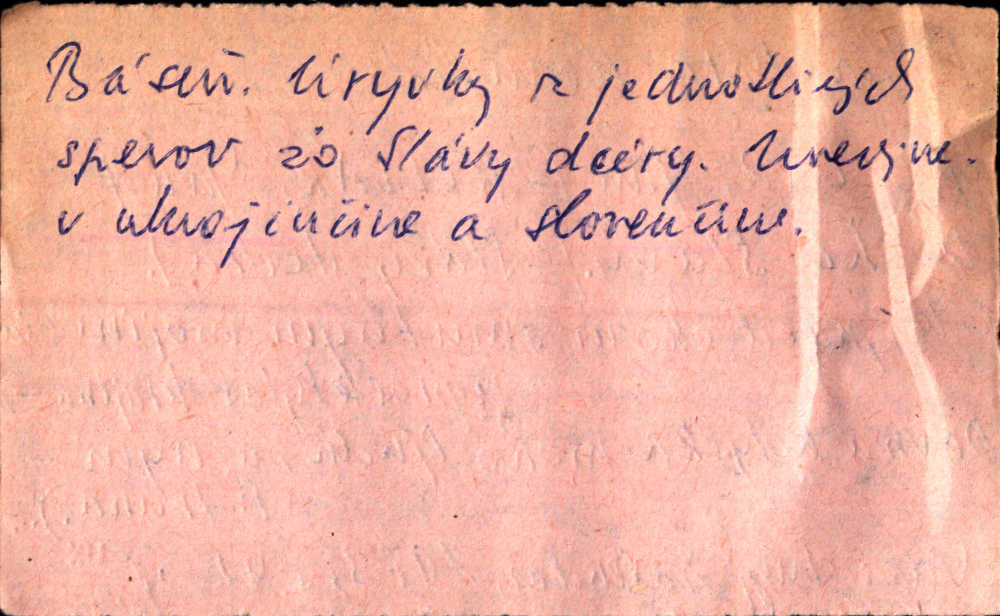 Báseň. Úryvky z jednotlivých
spevov zo Slávy dcéry. Uverejne.
v ukrajinčine a slovenčine.